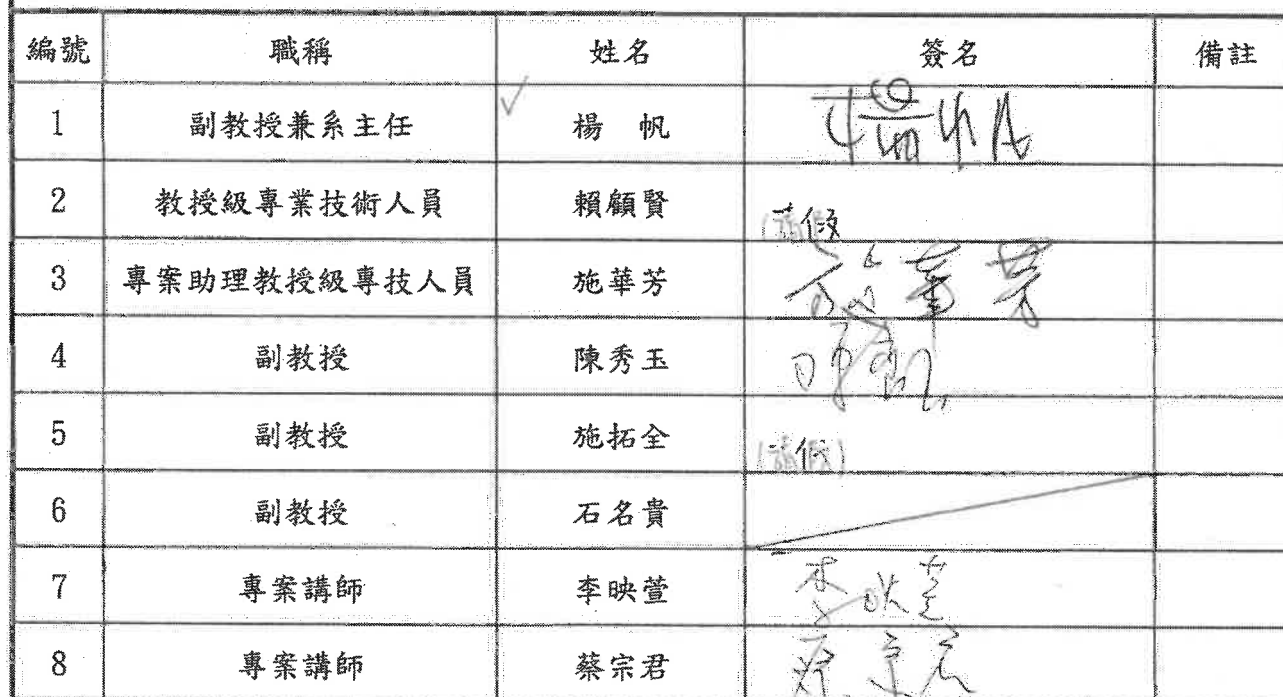 編號 職稱 姓名 簽名 備註
1 副教授兼系主任 楊 帆
2 教授級專業技術人員 賴顧賢 (請假)
3 專案助理教授級專技人員 施華芳 施華芳
4 副教授 陳秀玉
5 副教授 施拓全 (請假)
6 副教授 石名貴
7 專案講師 李映萱 李映萱
8 專案講師 蔡宗君 蔡宗君